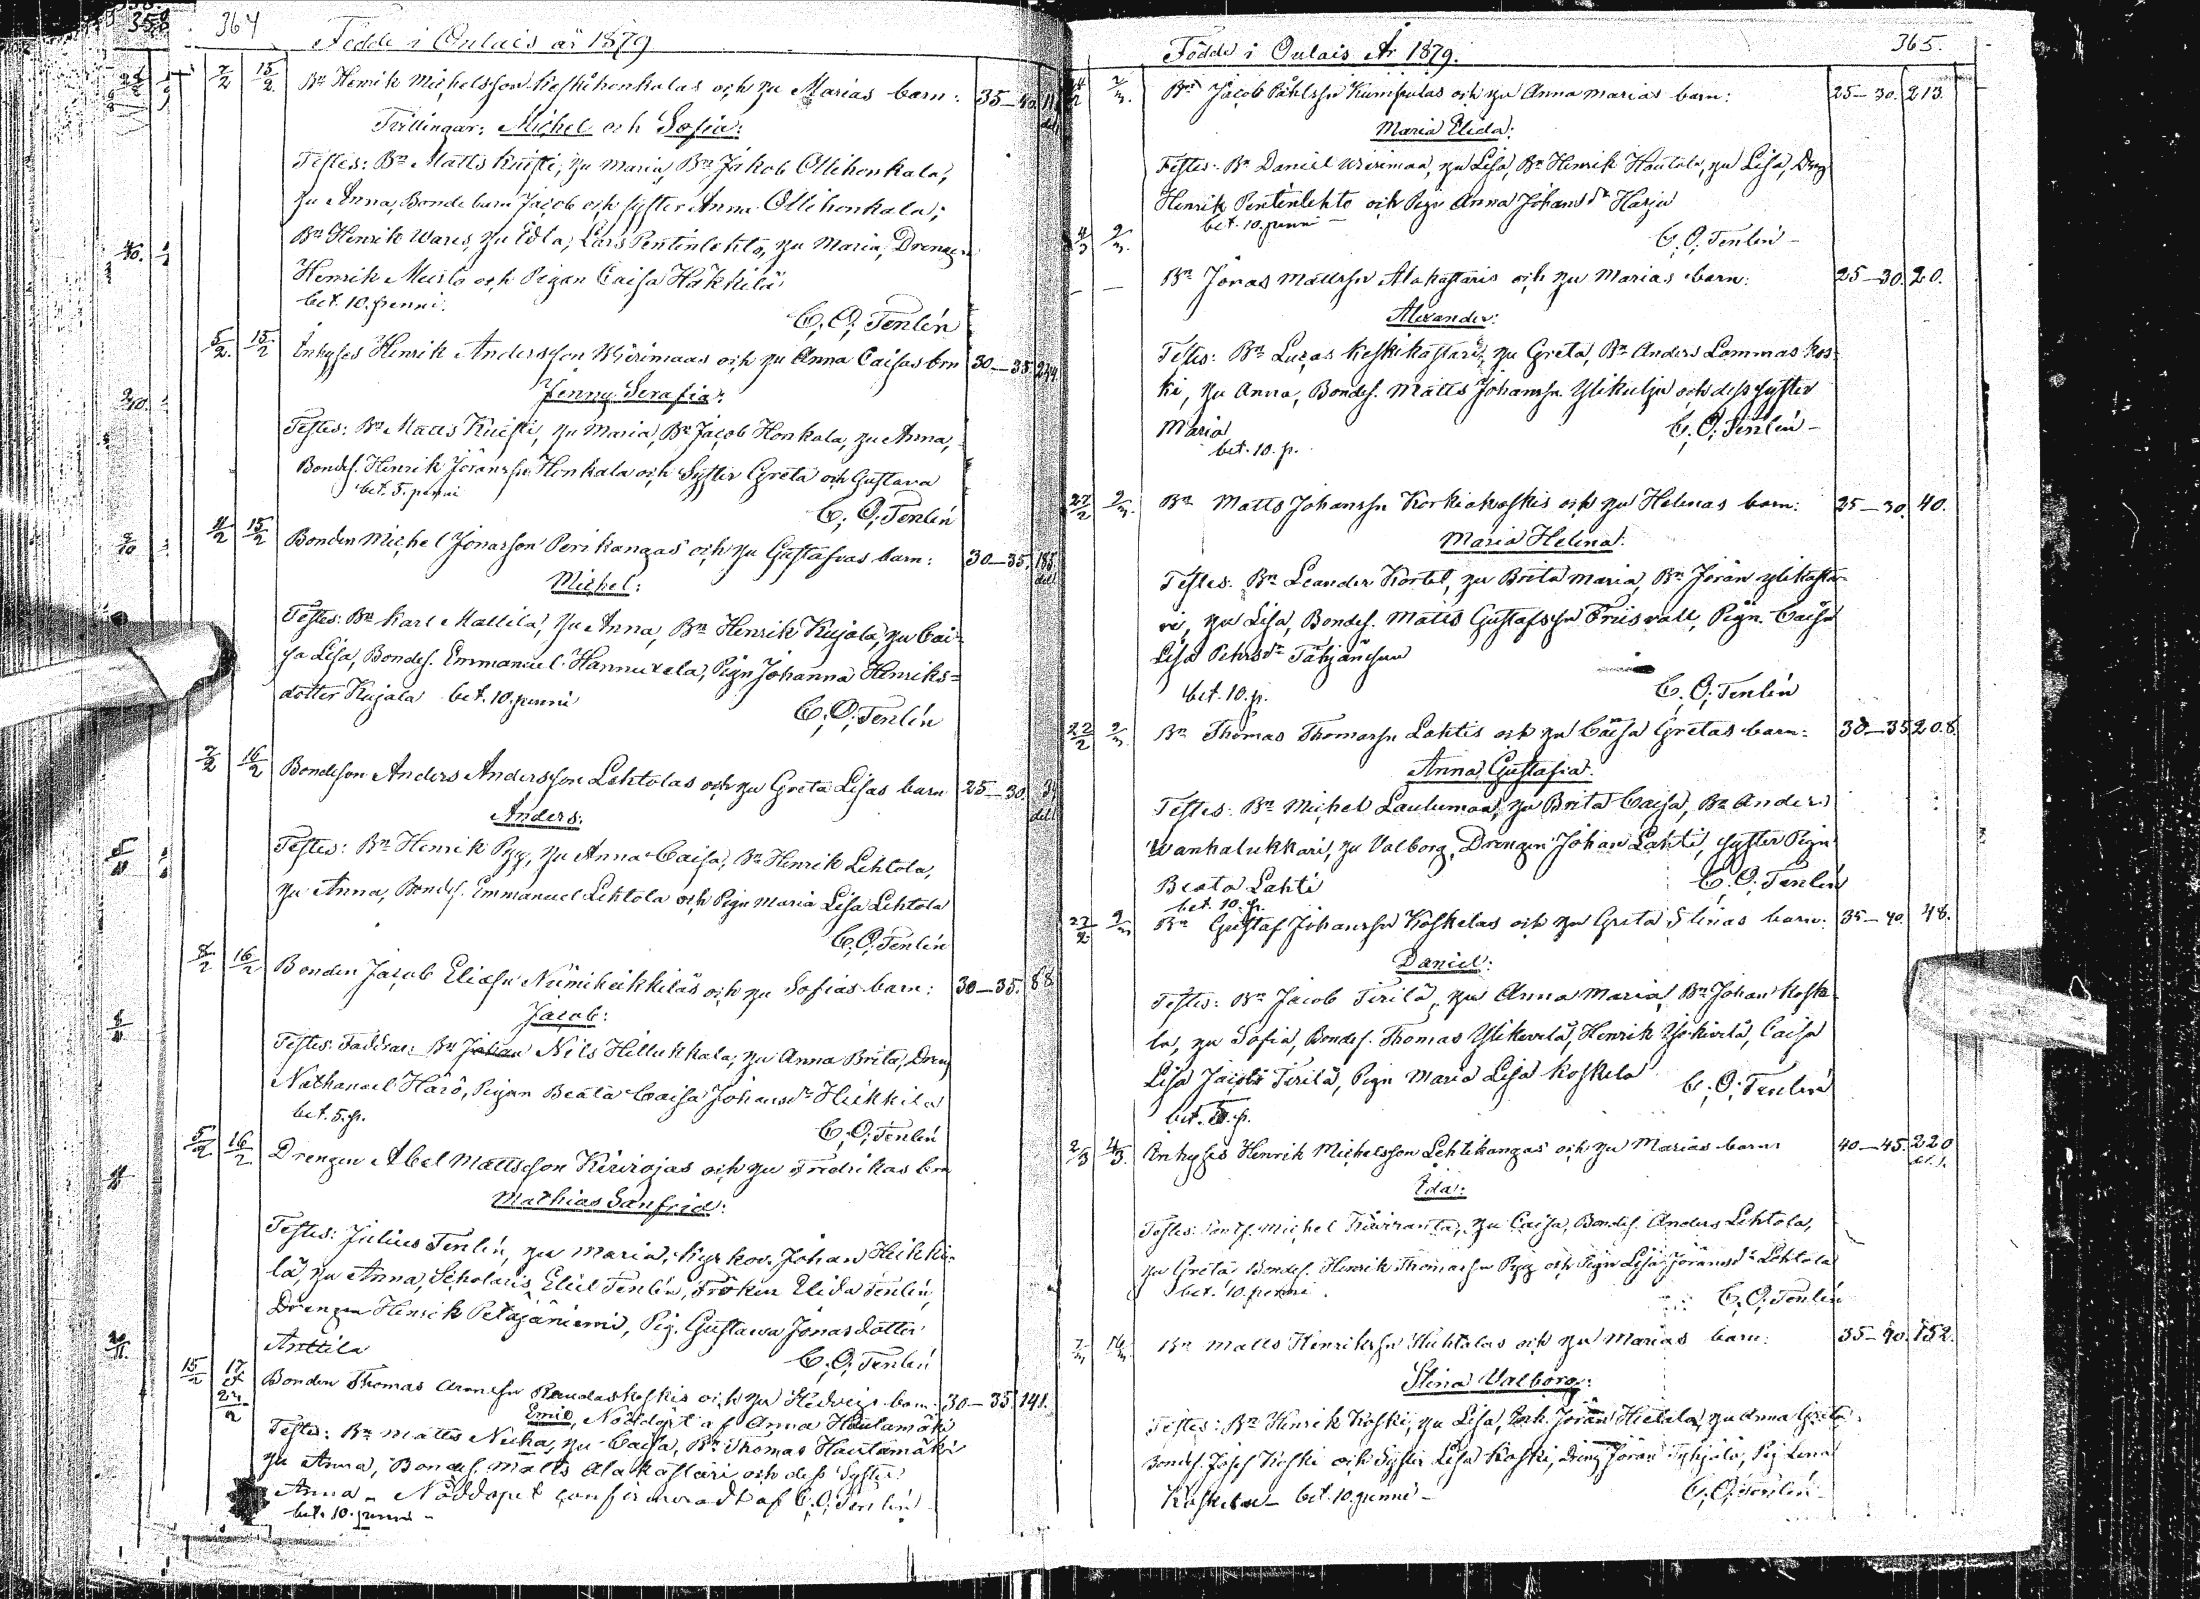 358
364
Födde i Oulais år 1879
7/2 15/2 Bn Henrik Michelsson Keskihonkalas och hu Marias barn: 35–40
Tvillingar: Michel och Sofia:
Testes: Bn Matts Knifti, hu Maria, Bn Jakob Ollihonkala,
hu Anna, Bonde barn Jacob och syster Anna Ollihonkala;
Bn Henrik Wares, hu Edla, Lars Pentinlehto, hu Maria, Drengen
Henrik Meilo och Pigan Caisa Häkkilä
bet. 10. penni.
C. O. Tenlén
5/2 15/2 Inhyses Henrik Andersson Wirimaas och hu Anna Caisas brn 30–35 244
Jenny Serafia:
Testes: Bn Matts Knifti, hu Maria, Bn Jacob Honkala, hu Anna,
Bondes. Henrik Göransn Honkala och Syster Greta och Gustava
bet. 5. penni
C. O. Tenlén
9/2 15/2 Bonden Michel Jonasson Perikangas och hu Gustafvas barn: 30–35. 185.
Michel:
Testes: Bn Karl Mattila, hu Anna, Bn Henrik Kujala, hu Cai-
sa Lisa, Bondes. Emmanuel Hannuxela, Pign Johanna Henriks=
dotter Kujala bet. 10. penni
C. O. Tenlén
7/2 16/2 Bondeson Anders Andersson Lehtolas och hu Greta Lisas barn 25–30.
Anders:
Testes: Bn Henrik Pyy, hu Anna Caisa, Bn Henrik Lehtola,
hu Anna, Bondes. Emmanuel Lehtola och Pign Maria Lisa Lehtola
C. O. Tenlén
8/2 16/2 Bonden Jacob Eliasn Niimiheikkiläs och hu Sofias barn: 30–35. 88
Jacob:
Testes: Faddrar: Bn Johan Nils Hillukkala, hu Anna Brita, Dreng
Nathanael Härö, Pigan Beata Caisa Johansdr Heikkilä
bet. 5. p.
C. O. Tenlén
5/2 16/2 Drengen Abel Mattsson Kivirojas och hu Fredrikas brn
Mathias Sanfrid:
Testes: Julius Tenlén, hu Maria, Kyrkov. Johan Heikki-
lä, hu Anna, Scholaris Eliel Tenlén, Fröken Elida Tenlén,
Drengen Henrik Petäjäniemi, Pig. Gustawa Jonasdotter
Anttila
C. O. Tenlén
15/2 17/2 Bonden Thomas Aronsn Raudaskoskis och hu Hedvigs barn: 30–35. 141.
Emil, Nöddöpt af Anna Hautamäki
Testes: Bn Matts Neika, hu Caisa, Bn Thomas Hautamäki
hu Anna, Bondes. Matts Alakastari och dess Syster
Anna – Nöddopet confirmeradt af C. O. Tenlén
bet. 10. penni –
Födde i Oulais År 1879.
365.
Bn Jacob Påhlssn Kumpulas och hu Anna Marias barn: 25–30. 213.
Maria Elida:
Testes: Bn Daniel Wirimaa, hu Lisa, Bn Henrik Hautala, hu Lisa, Dreng
Henrik Pentinlehto och Pign Anna Johansdr Harju
bet. 10. penni –
C. O. Tenlén –
4/3 9/3 Bn Jonas Mattssn Alakastaris och hu Marias barn: 25–30. 20.
Alexander:
Testes: Bn Lucas Keskikastari, hu Greta, Bn Anders Lammaskos-
ki, hu Anna, Bondes. Matts Johanssn Ylikulju och dess syster
Maria
C. O. Tenlén –
bet. 10. p.
22/2 9/3. Bn Matts Johanssn Korkiakoskis och hu Helenas barn: 25–30. 40.
Maria Helena:
Testes: Bn Leander Kortet, hu Brita Maria, Bn Jöran Ylikasta-
ri, hu Lisa, Bondes. Matts Gustafssn Friisvall, Pign. Caisa
Lisa Pehrsdr
C. O. Tenlén
bet. 10. p.
22/2 9/3 Bn Thomas Thomassn Lahtis och hu Caisa Gretas barn: 30–35 208.
Anna Gustafia.
Testes: Bn Michel Laulumaa, hu Brita Caisa, Bn Anders
Wanhalukkari, hu Valborg, Drengen Johan Lahti, syster Pign
Beata Lahti
C. O. Tenlén
bet. 10. p.
22/2 9/3 Bn Gustaf Johanssn Koskelas och hu Greta Stinas barn: 35–40. 48.
Daniel:
Testes: Bn Jacob Tirilä, hu Anna Maria, Bn Johan Koske-
la, hu Sofia, Bondes. Thomas Ylikivelä, Henrik Ylikivelä, Caisa
Lisa Jacobsdr Tirilä, Pign Maria Lisa Koskela
C. O. Tenlén
bet. 10. p.
2/3 4/3. Inhyses Henrik Michelsson Lehtikangas och hu Marias barn: 40–45. 220
Ida:
Testes: Michel Kiviranta, hu Caisa, Bondes. Anders Lehtola,
hu Greta, Bondes. Henrik Thomassn Pyy och Pign Lisa Jöransdr Lehtola
bet. 10. penni.
C. O. Tenlén
7/3 16/3 Bn Matts Henrikssn Huhtalas och hu Marias barn: 35–40. 152.
Stina Valborg:
Testes: Bn Henrik Koski, hu Lisa, Inh. Jöran Hietala, hu Anna Greta,
Bondes. Josef Koski och Syster Lisa Koski, Dreng Jöran Pig Lena
Koskela – bet. 10. penni –
C. O. Tenlén –